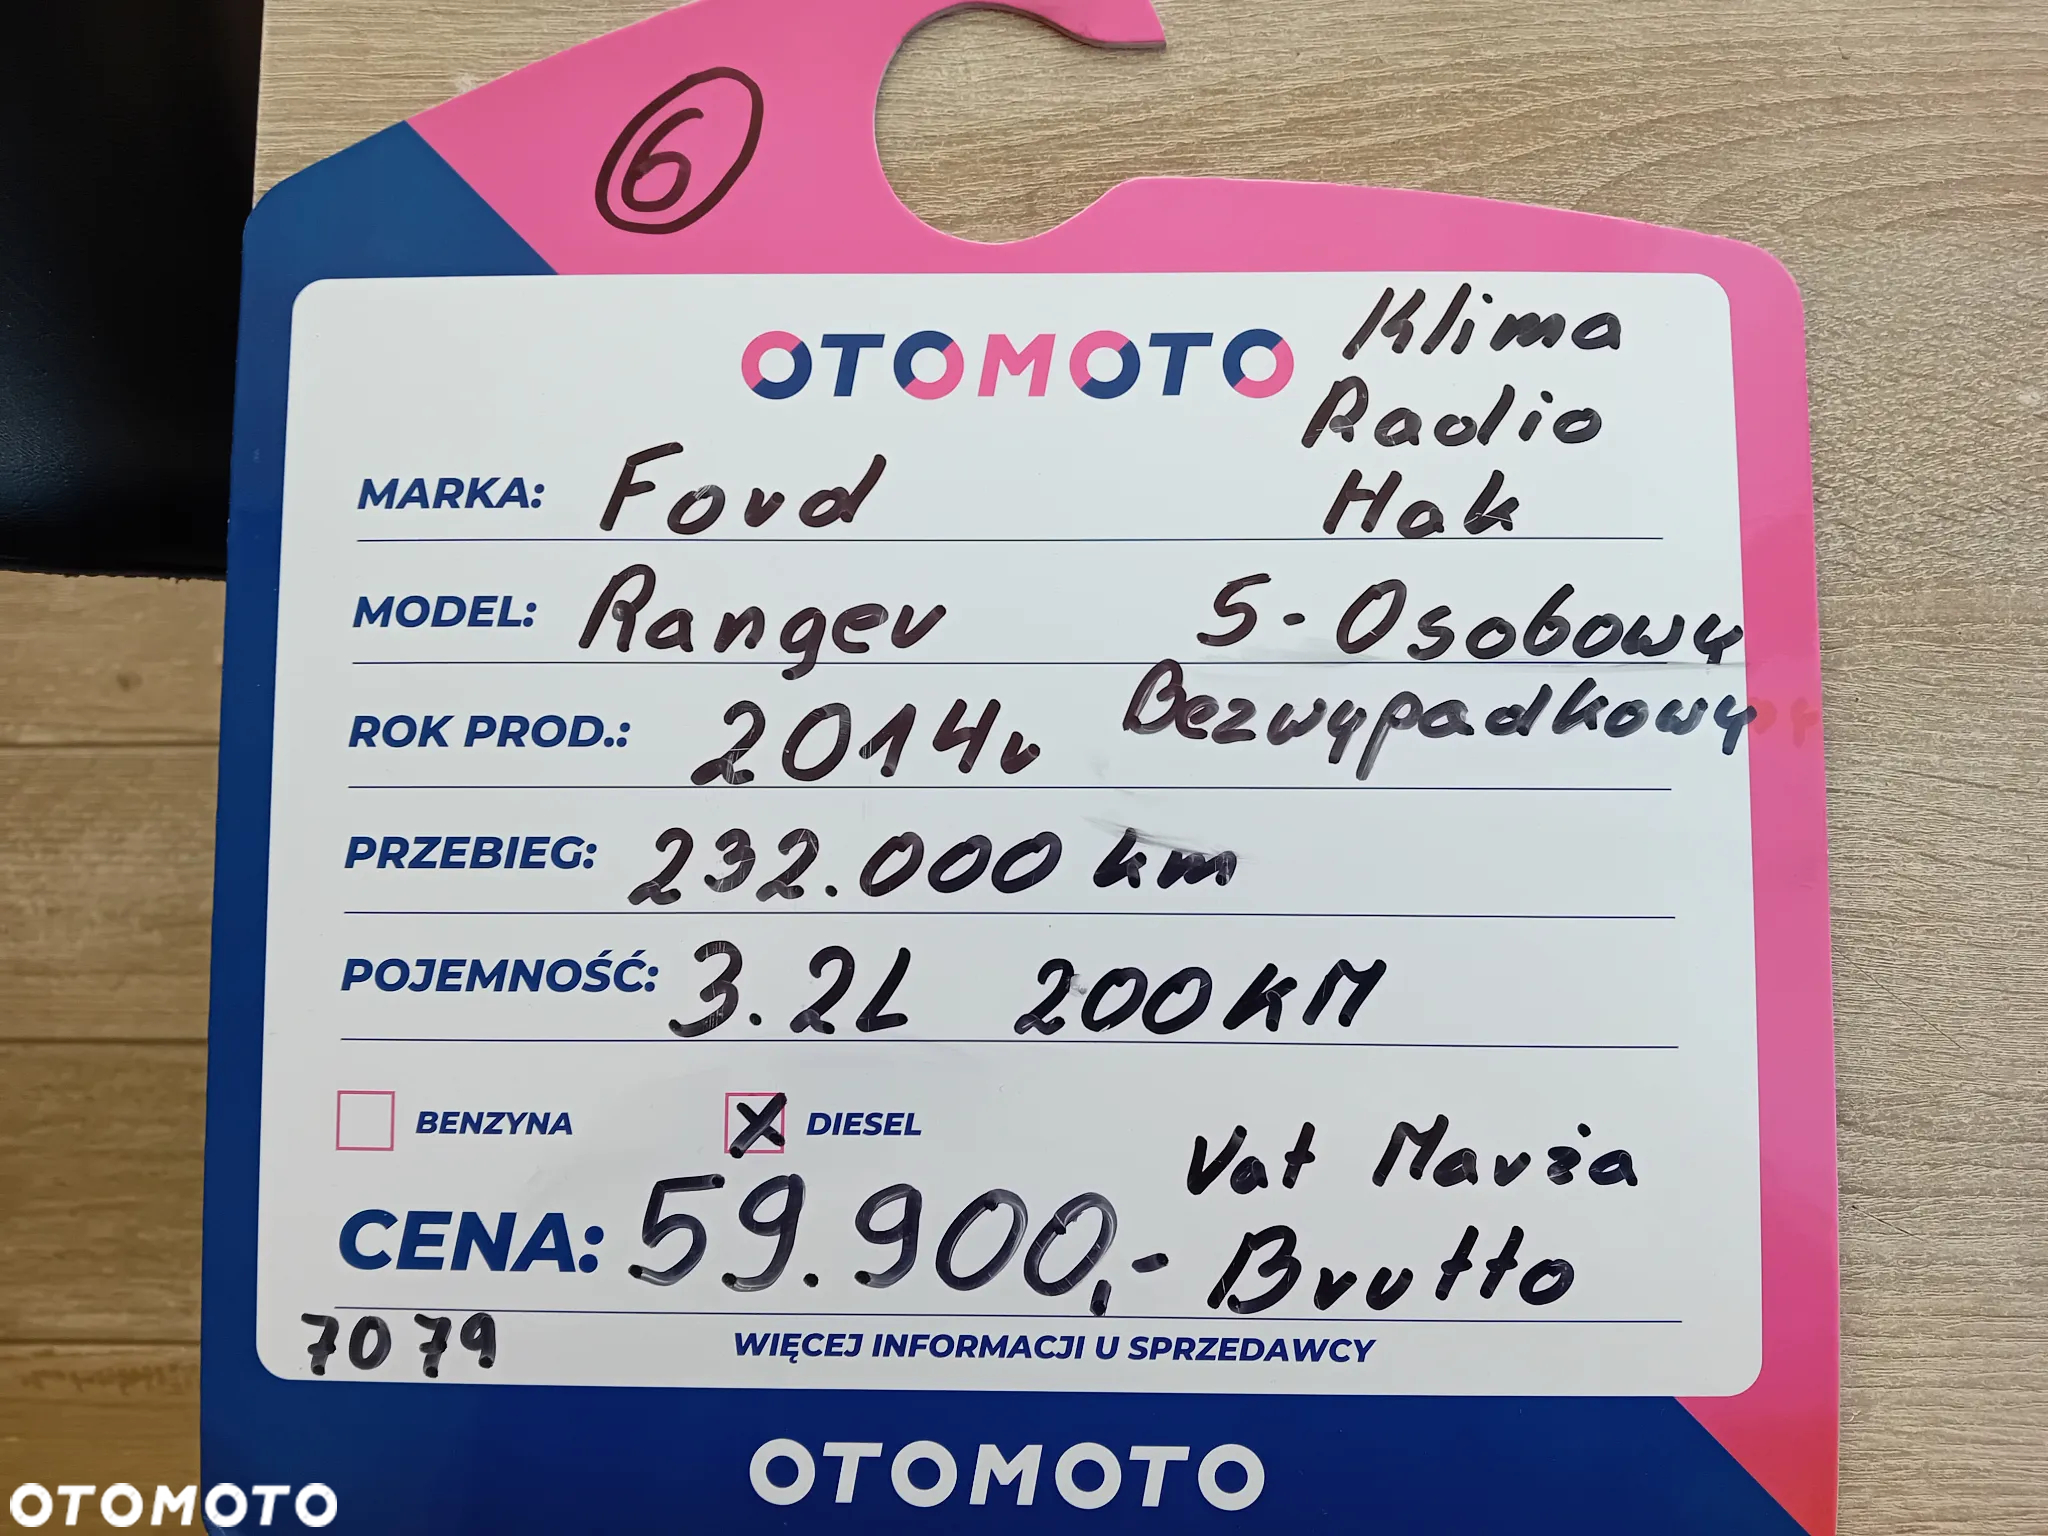 6
OTOMOTO
Klima
Radio
Hak
MARKA: Ford
MODEL: Ranger
5-Osobowy
Bezwypadkowy
ROK PROD.: 2014r
PRZEBIEG: 232.000 km
POJEMNOŚĆ: 3.2L 200KM
BENZYNA
X DIESEL
Vat Marża
CENA: 59.900,- Brutto
7079
WIĘCEJ INFORMACJI U SPRZEDAWCY
OTOMOTO
OTOMOTO